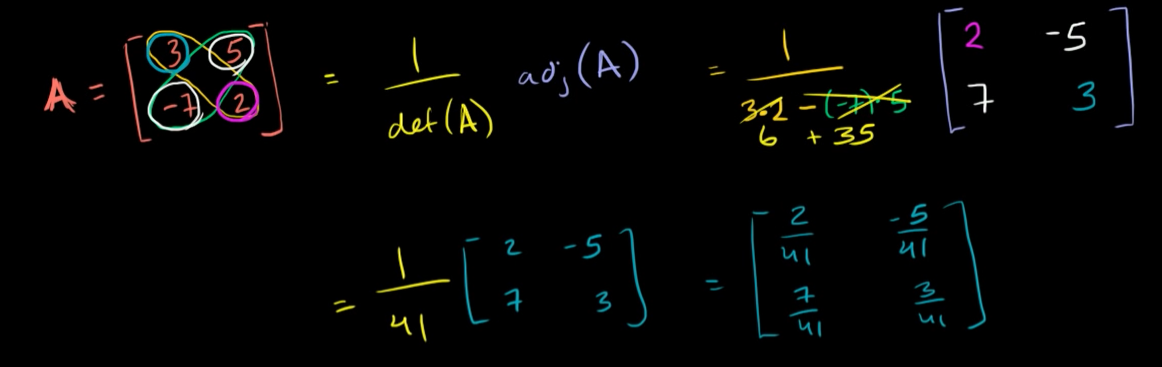 A = [ 3 5 ; -7 2 ] = 1/det(A) adj(A) = 1/(3·2 - (-7)·5) [ 2 -5 ; 7 3 ]
6 + 35
= 1/41 [ 2 -5 ; 7 3 ] = [ 2/41 -5/41 ; 7/41 3/41 ]